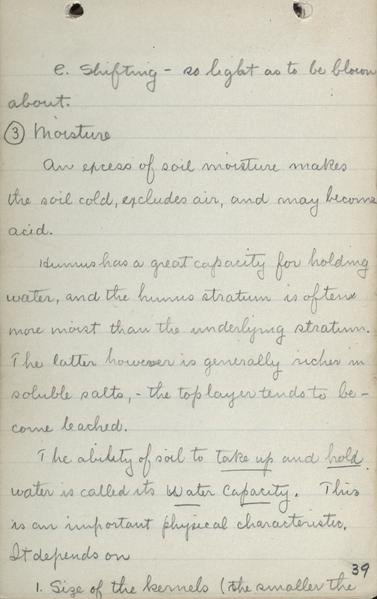 e. Shifting - so light as to be blown
about.
③ Moisture
An excess of soil moisture makes
the soil cold, excludes air, and may become
acid.
Humus has a great capacity for holding
water, and the humus stratum is often
more moist than the underlying stratum.
The latter however is generally richer in
soluble salts, - the top layer tends to be-
come leached.
The ability of soil to take up and hold
water is called its Water Capacity. This
is an important physical characteristic.
It depends on
39
1. Size of the kernels (the smaller the